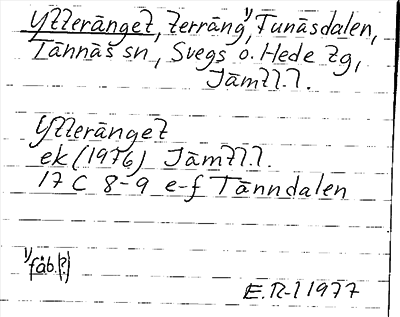 Ytteränget, terräng,¹⁾ Funäsdalen,
Tännäs sn, Svegs o. Hede tg,
Jämtl. l.
Ytteränget
ek (1976) Jämtl. l.
17 C 8-9 e-f Tänndalen
¹⁾ fäb. (?)
E.R-l 1977